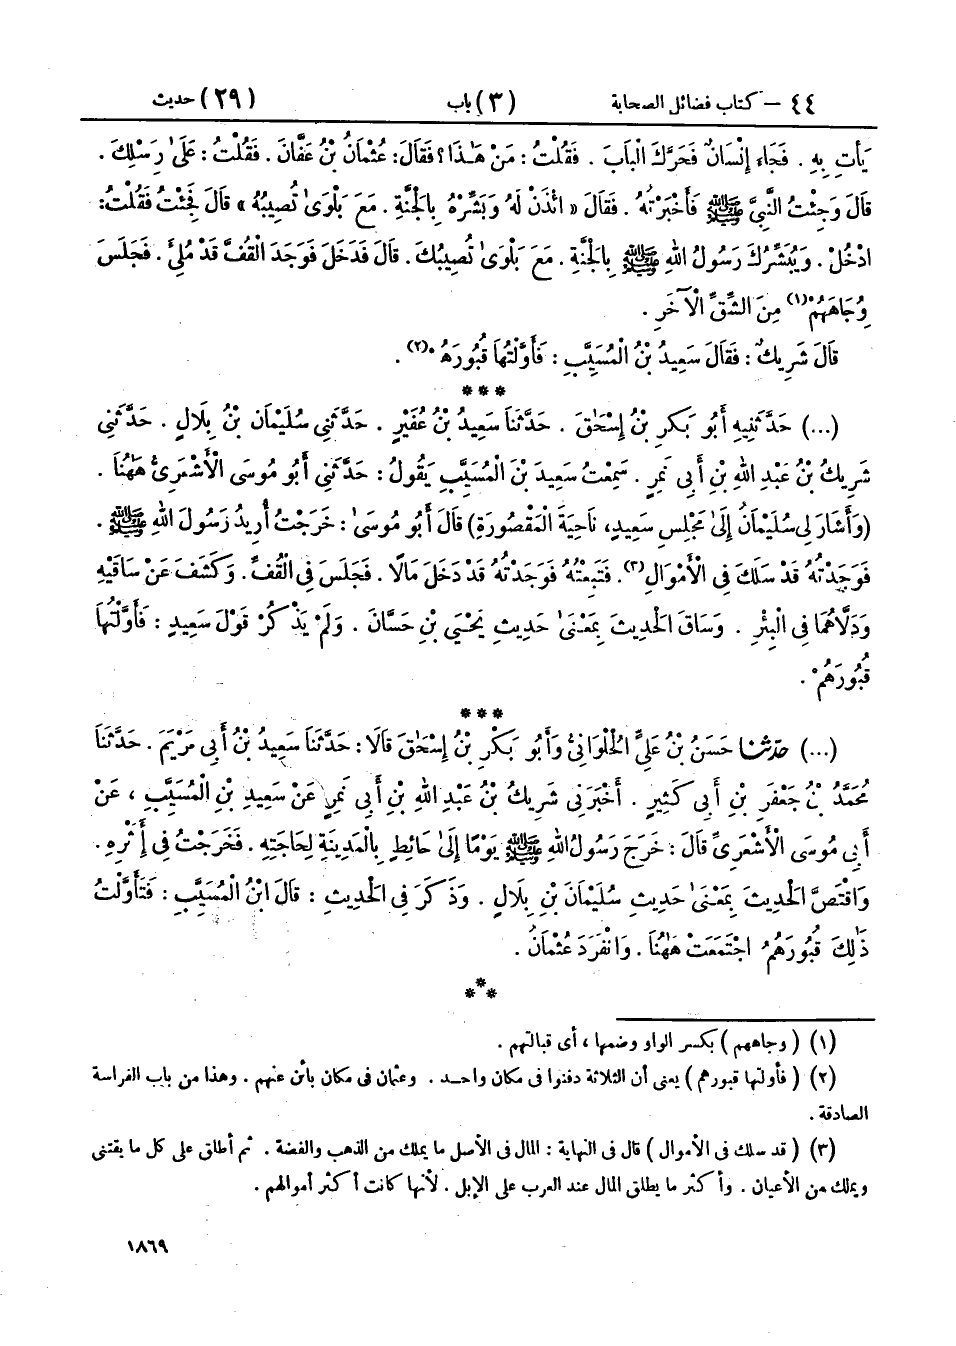 ٤٤ — كتاب فضائل الصحابة (٣) باب (٢٩) حديث
يَأْتِ بِهِ . فَجَاءَ إِنْسَانٌ فَحَرَّكَ الْبَابَ . فَقُلْتُ : مَنْ هَـٰذَا ؟ فَقَالَ : عُثْمَانُ بْنُ عَفَّانَ . فَقُلْتُ : عَلَىٰ رِسْلِكَ .
قَالَ وَجِئْتُ النَّبِيَّ ﷺ فَأَخْبَرْتُهُ . فَقَالَ « ائْذَنْ لَهُ وَبَشِّرْهُ بِالْجَنَّةِ . مَعَ بَلْوَىٰ تُصِيبُهُ » قَالَ فَجِئْتُ فَقُلْتُ :
ادْخُلْ . وَيُبَشِّرُكَ رَسُولُ اللهِ ﷺ بِالْجَنَّةِ . مَعَ بَلْوَىٰ تُصِيبُكَ . قَالَ فَدَخَلَ فَوَجَدَ الْقُفَّ قَدْ مُلِئَ . فَجَلَسَ
وِجَاهَهُمْ(١) مِنَ الشِّقِّ الْآخَرِ .
قَالَ شَرِيكٌ : فَقَالَ سَعِيدُ بْنُ الْمُسَيَّبِ : فَأَوَّلْتُهَا قُبُورَهُمْ(٢) .
* * *
(...) حَدَّثَنِيهِ أَبُو بَكْرِ بْنُ إِسْحَـٰقَ . حَدَّثَنَا سَعِيدُ بْنُ عُفَيْرٍ . حَدَّثَنِي سُلَيْمَانُ بْنُ بِلَالٍ . حَدَّثَنِي
شَرِيكُ بْنُ عَبْدِ اللهِ بْنِ أَبِي نَمِرٍ . سَمِعْتُ سَعِيدَ بْنَ الْمُسَيَّبِ يَقُولُ : حَدَّثَنِي أَبُو مُوسَى الْأَشْعَرِيُّ هَـٰهُنَا .
(وَأَشَارَ لِي سُلَيْمَانُ إِلَىٰ مَجْلِسِ سَعِيدٍ، نَاحِيَةَ الْمَقْصُورَةِ) قَالَ أَبُو مُوسَىٰ : خَرَجْتُ أُرِيدُ رَسُولَ اللهِ ﷺ .
فَوَجَدْتُهُ قَدْ سَلَكَ فِي الْأَمْوَالِ(٣). فَتَبِعْتُهُ فَوَجَدْتُهُ قَدْ دَخَلَ مَالًا . فَجَلَسَ فِي الْقُفِّ . وَكَشَفَ عَنْ سَاقَيْهِ
وَدَلَّاهُمَا فِي الْبِئْرِ . وَسَاقَ الْحَدِيثَ بِمَعْنَىٰ حَدِيثِ يَحْيَى بْنِ حَسَّانَ . وَلَمْ يَذْكُرْ قَوْلَ سَعِيدٍ : فَأَوَّلْتُهَا
قُبُورَهُمْ .
* * *
(...) حدّثنا حَسَنُ بْنُ عَلِيٍّ الْحُلْوَانِيُّ وَأَبُو بَكْرِ بْنُ إِسْحَـٰقَ قَالَا : حَدَّثَنَا سَعِيدُ بْنُ أَبِي مَرْيَمَ . حَدَّثَنَا
مُحَمَّدُ بْنُ جَعْفَرِ بْنِ أَبِي كَثِيرٍ . أَخْبَرَنِي شَرِيكُ بْنُ عَبْدِ اللهِ بْنِ أَبِي نَمِرٍ عَنْ سَعِيدِ بْنِ الْمُسَيَّبِ ، عَنْ
أَبِي مُوسَى الْأَشْعَرِيِّ قَالَ : خَرَجَ رَسُولُ اللهِ ﷺ يَوْمًا إِلَىٰ حَائِطٍ بِالْمَدِينَةِ لِحَاجَتِهِ . فَخَرَجْتُ فِي إِثْرِهِ .
وَاقْتَصَّ الْحَدِيثَ بِمَعْنَىٰ حَدِيثِ سُلَيْمَانَ بْنِ بِلَالٍ . وَذَكَرَ فِي الْحَدِيثِ : قَالَ ابْنُ الْمُسَيَّبِ : فَتَأَوَّلْتُ
ذَٰلِكَ قُبُورَهُمُ اجْتَمَعَتْ هَـٰهُنَا . وَانْفَرَدَ عُثْمَانُ .
* * *
(١) ( وجاههم ) بكسر الواو وضمها ، أى قبالتهم .
(٢) ( فأولتها قبورهم ) يعنى أن الثلاثة دفنوا فى مكان واحد . وعثمان فى مكان بائن عنهم . وهذا من باب الفراسة
الصادقة .
(٣) ( قد سلك فى الأموال ) قال فى النهاية : المال فى الأصل ما يملك من الذهب والفضة . ثم أطلق على كل ما يقتنى
ويملك من الأعيان . وأكثر ما يطلق المال عند العرب على الإبل . لأنها كانت أكثر أموالهم .
١٨٦٩